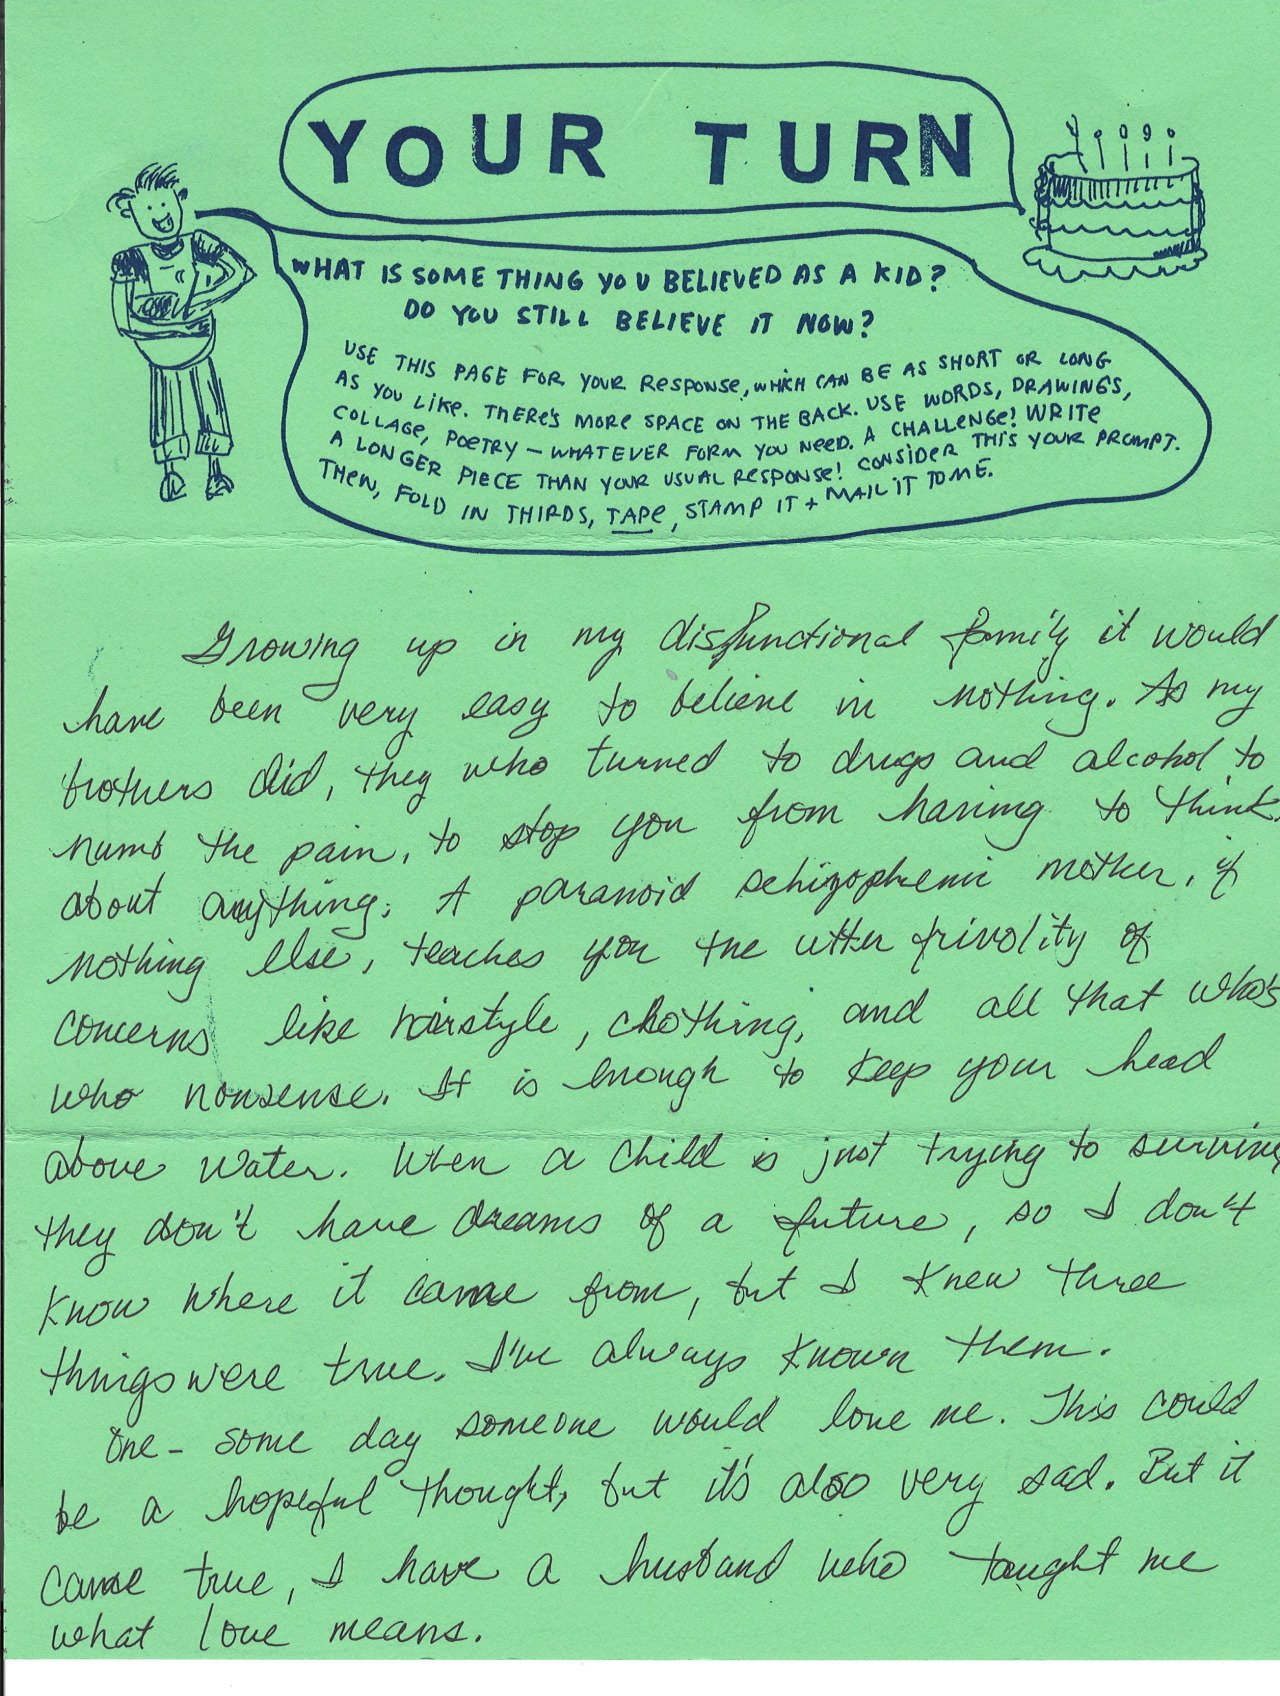 YOUR TURN
WHAT IS SOMETHING YOU BELIEVED AS A KID?
DO YOU STILL BELIEVE IT NOW?
USE THIS PAGE FOR YOUR RESPONSE, WHICH CAN BE AS SHORT OR LONG
AS YOU LIKE. THERE'S MORE SPACE ON THE BACK. USE WORDS, DRAWINGS,
COLLAGE, POETRY – WHATEVER FORM YOU NEED. A CHALLENGE! WRITE
A LONGER PIECE THAN YOUR USUAL RESPONSE! CONSIDER THIS YOUR PROMPT.
THEN, FOLD IN THIRDS, TAPE, STAMP IT + MAIL IT TO ME.
Growing up in my disfunctional family it would
have been very easy to believe in nothing. As my
brothers did, they who turned to drugs and alcohol to
numb the pain, to stop you from having to think
about anything. A paranoid schizophrenic mother, if
nothing else, teaches you the utter frivolity of
concerns like hairstyle, clothing, and all that who's
who nonsense. It is enough to keep your head
above water. When a child is just trying to survive
they don't have dreams of a future, so I don't
know where it came from, but I knew three
things were true. I've always known them.
One – some day someone would love me. This could
be a hopeful thought, but it's also very sad. But it
came true, I have a husband who taught me
what love means.